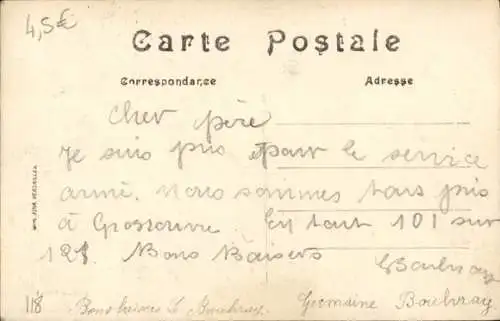 4,5€
Carte Postale
Correspondance
Adresse
Cher père
Je suis pris pour le service
armé. nous sommes tous pris
à Grossouvre. En tout 101 sur
128. Bons Baisers
118
Bons baisers
Germaine Boubray